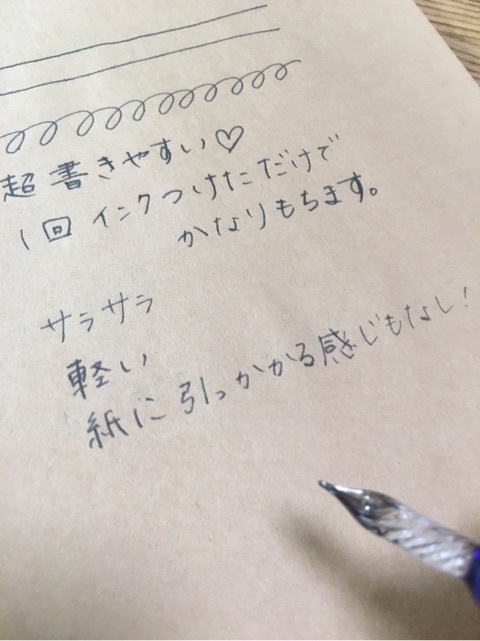 超書きやすい♡
1回インクつけただけで
かなりもちます。
サラサラ
軽い
紙に引っかかる感じもなし!